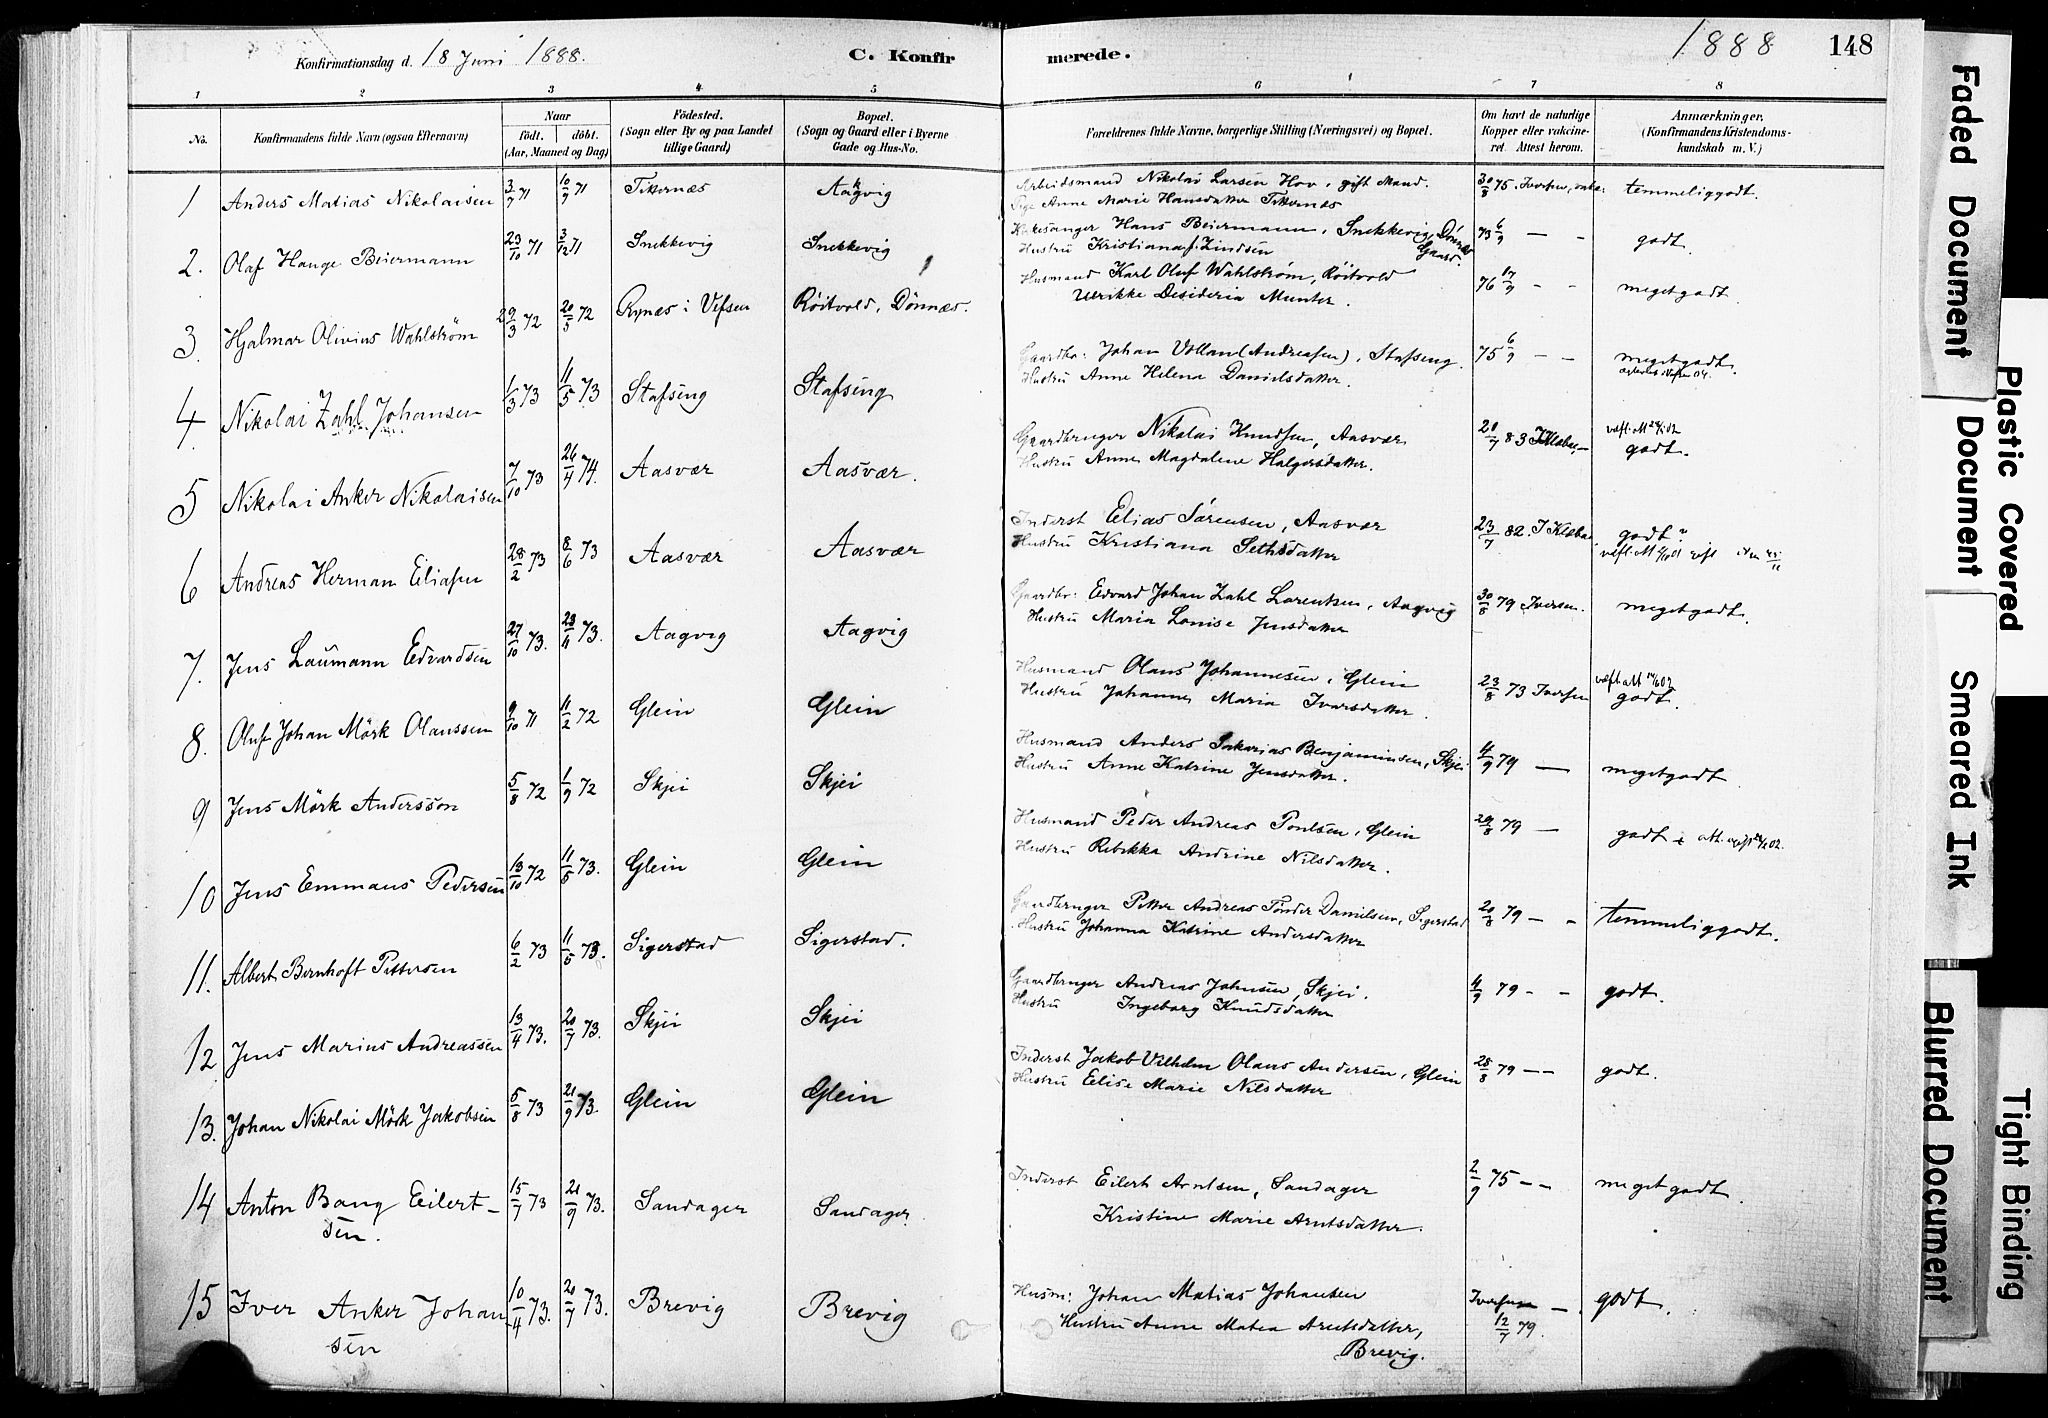 Konfirmationsdag d. 18 Juni 1888. C. Konfirmerede. 1888 148
1 2 3 4 5 6 7 8
No. Konfirmandens fulde Navn (ogsaa Efternavn) Naar födt. döbt. (Aar, Maaned og Dag) Födested. (Sogn eller By og paa Landet tillige Gaard) Bopæl. (Sogn og Gaard eller i Byerne Gade og Hus-No. Forældrenes fulde Navne, borgerlige Stilling (Næringsvei) og Bopæl. Om havt de naturlige Kopper eller vakcineret. Attest herom. Anmærkninger. (Konfirmandens Kristendomskundskab m. V.)
1 Anders Matias Nikolaisen 3/7 71 10/9 71 Titternæs Aakvig Arbeidsmand Nikolai Larsen Hov, gift Mand. 30/8 75. Iversen, temmeliggodt.
Pige Anne Marie Hansdatter Titternæs
2. Olaf Hauge Beiermann 23/10 71 3/12 71 Snekkevig Snekkevig Kirkesanger Hans Beiermann, Snekkevig, Dönnes Gaard. 73 6/9 — - godt.
Hustru Kristiana f. Zindsen
3. Hjalmar Olivius Wahlström 29/3 72 20/5 72 Rynæs i Vefsen Röitvold, Dönnæs. Husmand Karl Oluf Wahlström, Röitvold 76 17/9 - - megetgodt.
Ulrikke Desideria Munter.
4 Nikolai Zahl Johansen 1/3 73 11/5 73 Stafseng Stafseng Gaardbr: Johan Volland (Andreasen), Stafseng. 75 6/9 — — megetgodt.
Hustru Anne Helena Danielsdatter.
5 Nikolai Anker Nikolaisen 7/10 73 26/4 74. Aasvær Aasvær. Gaardbruger Nikolai Knudsen, Aasvær 20/7 83 J Klæboe,- godt.
Hustru Anne Magdalene Halgersdatter.
6 Andreas Herman Eliasen 28/2 73 8/6 73 Aasvær Aasvær Inderst Elias Sörensen, Aasvær 23/7 82. J Klæboe. godt
Hustru Kristiana Sethsdatter
7. Jens Laumann Edvardsen 27/10 73. 23/4 73. Aagvig Aagvig Gaardbr: Edvard Johan Zahl Lorentsen, Aagvig 30/8 79 Iversen. megetgodt.
Hustru Maria Lovise Jensdatter
8. Oluf Johan Mörk Olaussen 9/10 71 11/2 72 Glein Glein Husmand Olaus Johannesen, Glein 23/8 73 Iversen godt.
Hustru Johanne Maria Ivarsdatter.
9 Jens Mörk Andersson 5/8 72 1/9 72 Skjei Skjei Husmand Anders Sakarias Benjaminsen, Skjei 4/9 79 — megetgodt
Hustru Anne Katrine Jensdatter.
10 Jens Emmaus Pedersen 13/10 72 11/5 73. Glein Glein Husmand Peder Andreas Poulsen, Glein 29/8 79 — godt
Hustru Rebekka Andrine Nilsdatter.
11. Albert Bernhoft Pettersen 6/2 73 11/5 73. Sigerstad Sigerstad. Gaardbruger Petter Andreas Tönder Danielsen, Sigerstad 20/8 79 — - temmeliggodt.
Hustru Johanna Katrine Andersdatter
12 Jens Marius Andreassen 13/4 73. 20/7 73. Skjei Skjei Gaardbruger Andreas Johnsen, Skjei. 4/9 79 - - godt.
Hustru Ingeborg Knudsdatter
13. Johan Nikolai Mörk Jakobsen 5/8 73 21/9 73. Glein Glein Inderst Jakob Vilhelm Olaus Andersen, Glein 28/8 79 -- godt.
Hustru Elise Marie Nilsdatter
14 Anton Bang Eilert- 15/7 73 21/9 73. Sandager Sandager Inderst Eilert Arntsen, Sandager 2/9 75 -- megetgodt.
sen. Kristine Marie Arntsdatter.
15 Iver Anker Johan 10/4 73. 20/7 73. Brevig Brevig Husm: Johan Matias Johansen Iversen — godt.
sen Hustru Anne Matea Arntsdatter, 12/7 79.
Brevig.
Faded Document
Plastic Covered Document
Smeared Ink
Blurred Document
Tight Binding